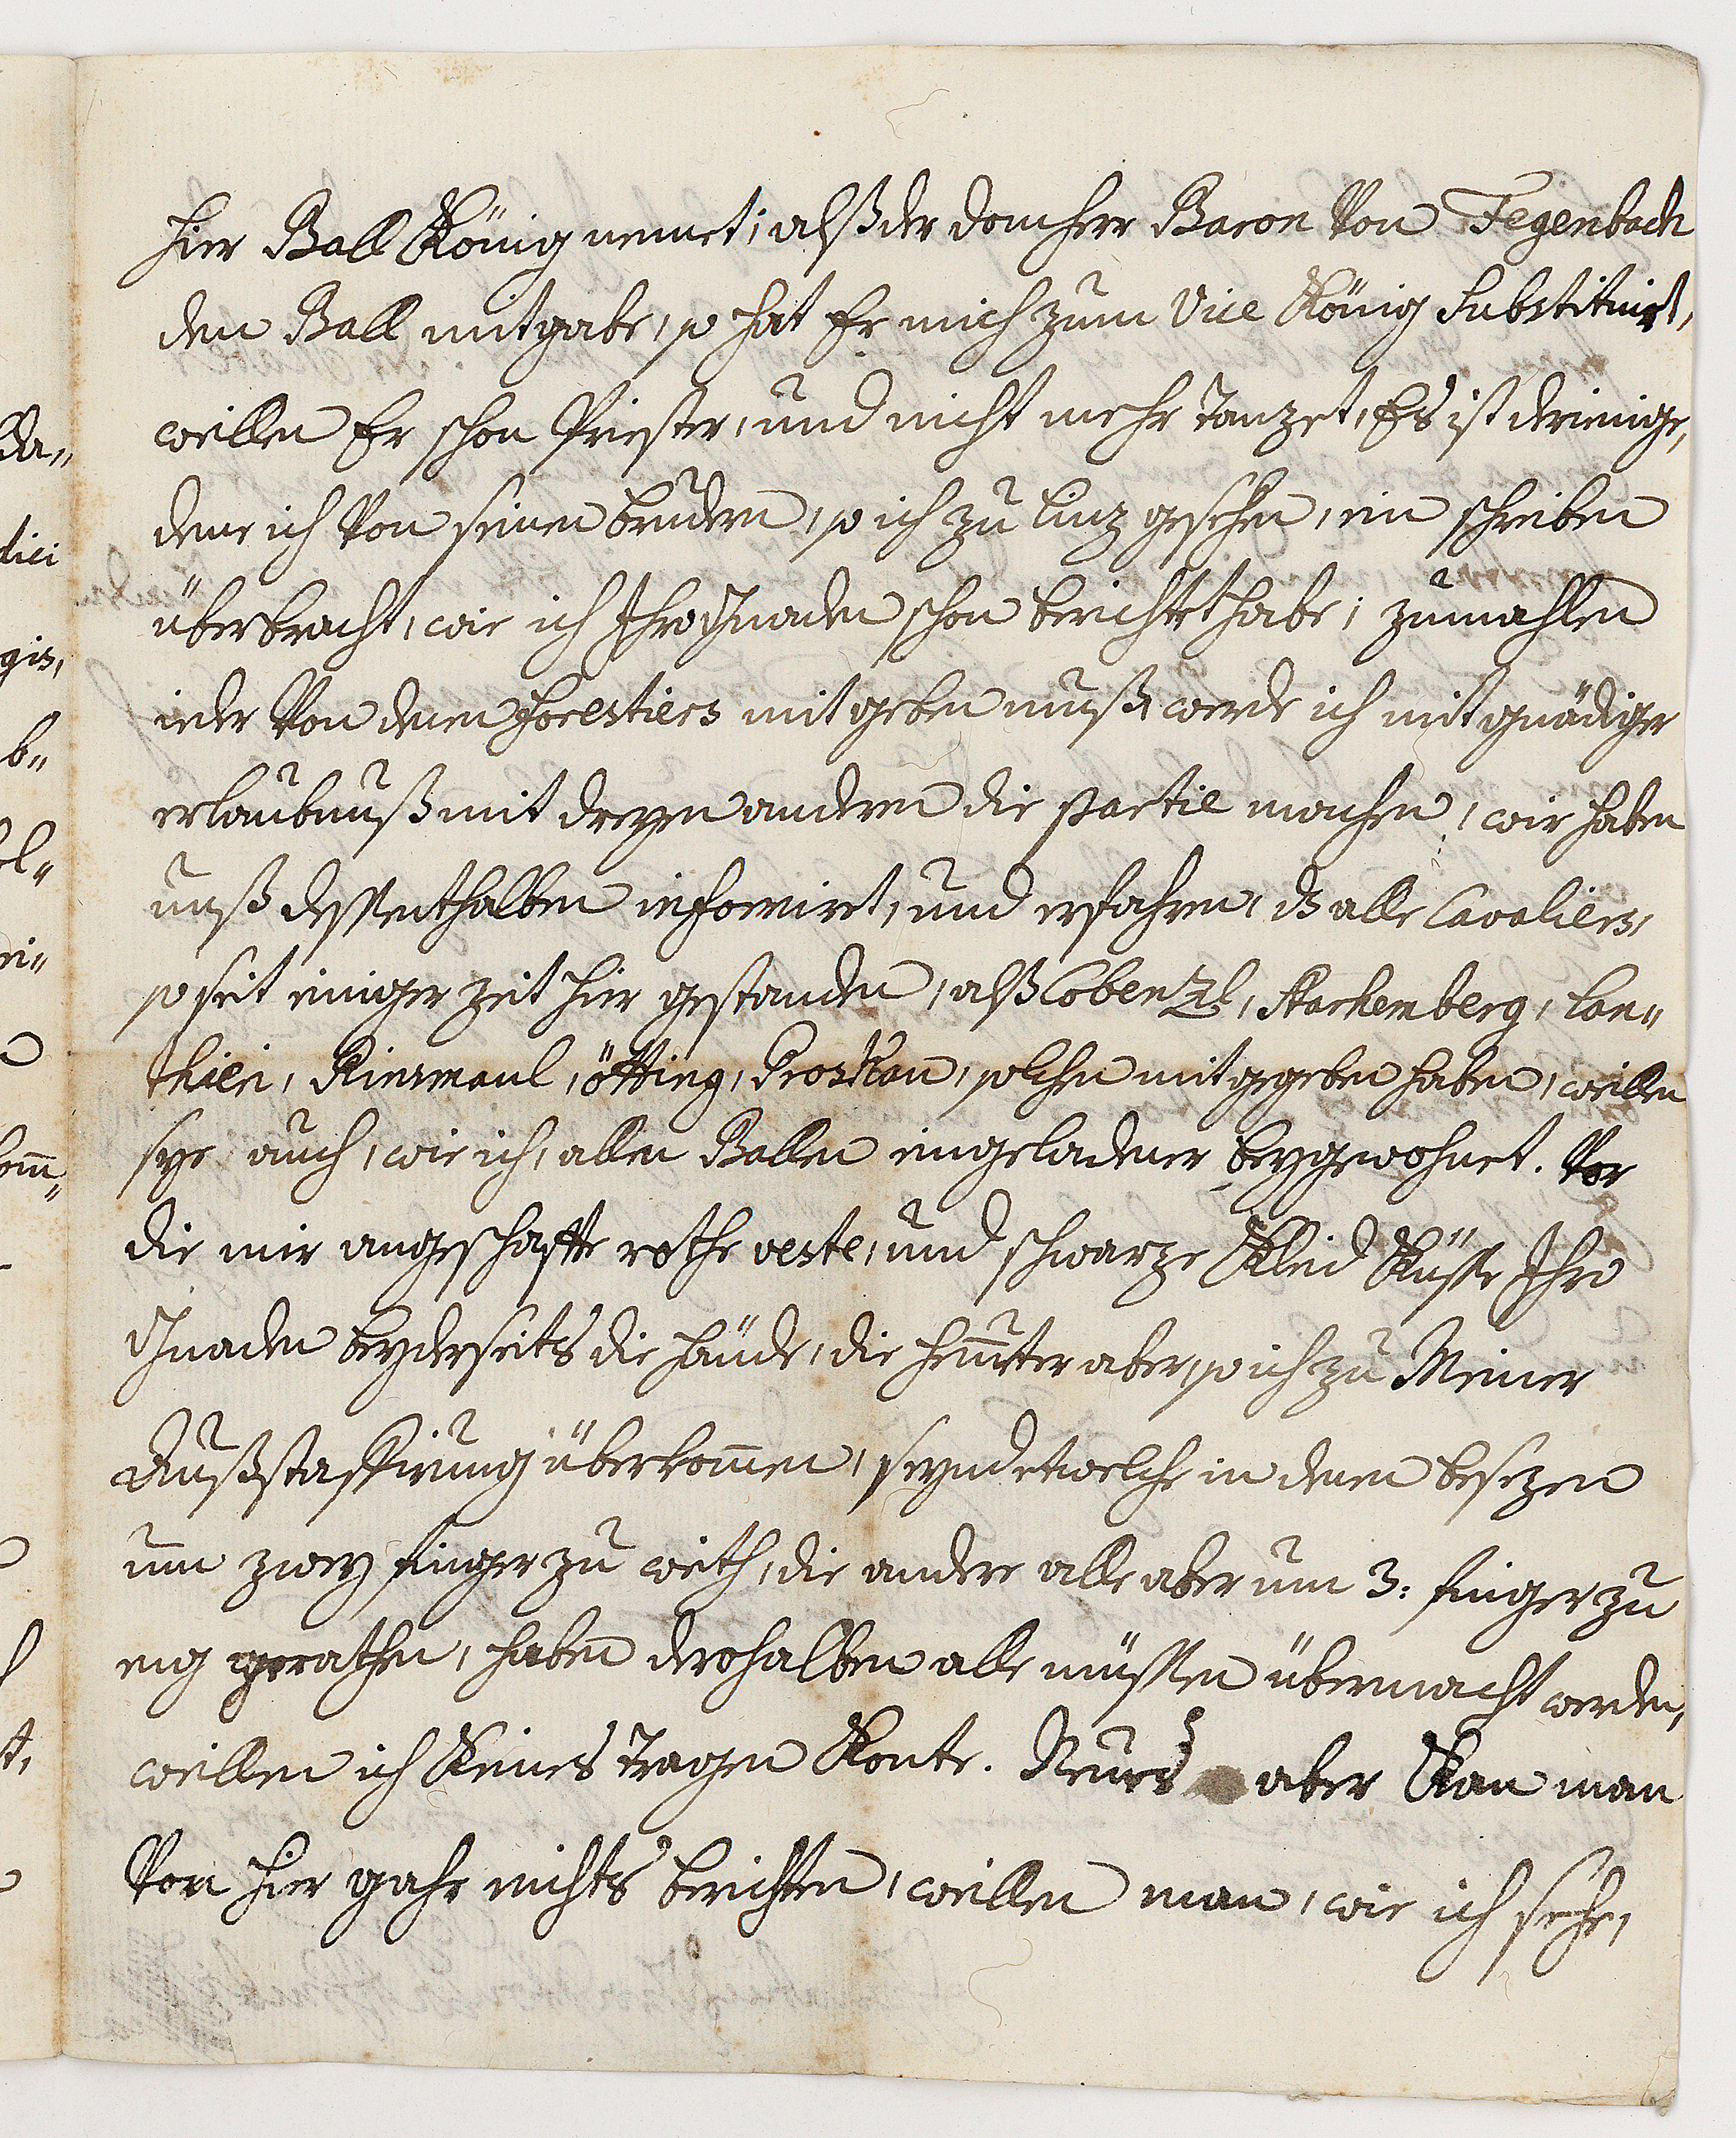 hier Ball König nennet; alß der domherr Baron Von Fegenbach
den Ball mitgabe, so hat Er mich zum Vice König Substituirt,
weillen Er schon Priester, und nicht mehr tanzet, Es ist derienige,
deme ich Von seinen brudern, so ich zu Linz gesehen, ein schreiben
überbracht, wie ich Ihro Gnaden schon berichtet habe; zumahlen
ieder Von denen forestiers mitgeben muß, werde ich mit gnädiger
erlaubnuß mit dreyen anderen die partie machen, wir haben
unß dessenthalben informirt, und erfahren, dz alle Cavaliers,
so seit einiger zeit hier gestanden, alß Cobenzl, Starhemberg, Lan„
thieri, Kinsmaul, ötting, Proskau, solchen mitgegeben haben, weillen
sye auch, wie ich, allen Ballen eingeladener beygewohnet. Vor
die mir angeschaffte rothe veste, und schwarze Kleid Küsse Ihro
Gnaden beyderseits die hände, die hemmeter aber, so ich zu Meiner
Außstaffirung überkommen, seynd etwelche in denen besezen
um zwey finger zu weith, die andere alle aber um 3: finger zu
eng gerathen, haben derohalben alle müssen übermacht werden,
weillen ich Keines tragen Konte. Neues aber Kan man
Von hier gahr nichts berichten, weillen man, wie ich sehe,
da„
dici
gis,
b„
el„
ri„
t,